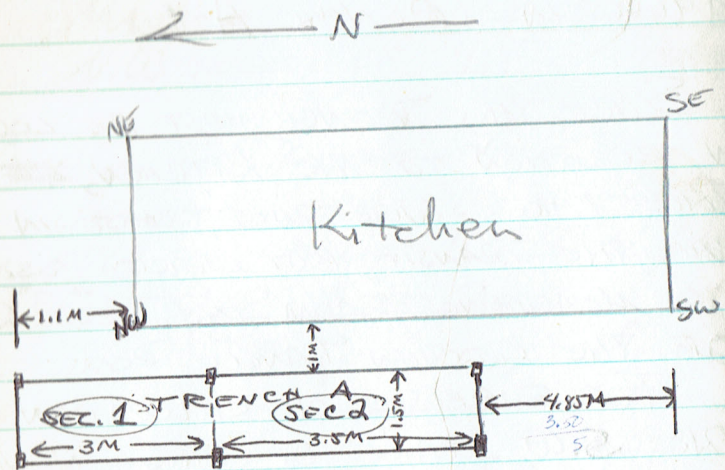 N
NE
SE
Kitchen
1.1M
NW
SW
1M
TRENCH A
SEC. 1
SEC 2
1.5M
4.85M
3M
3.5M
3.50
5